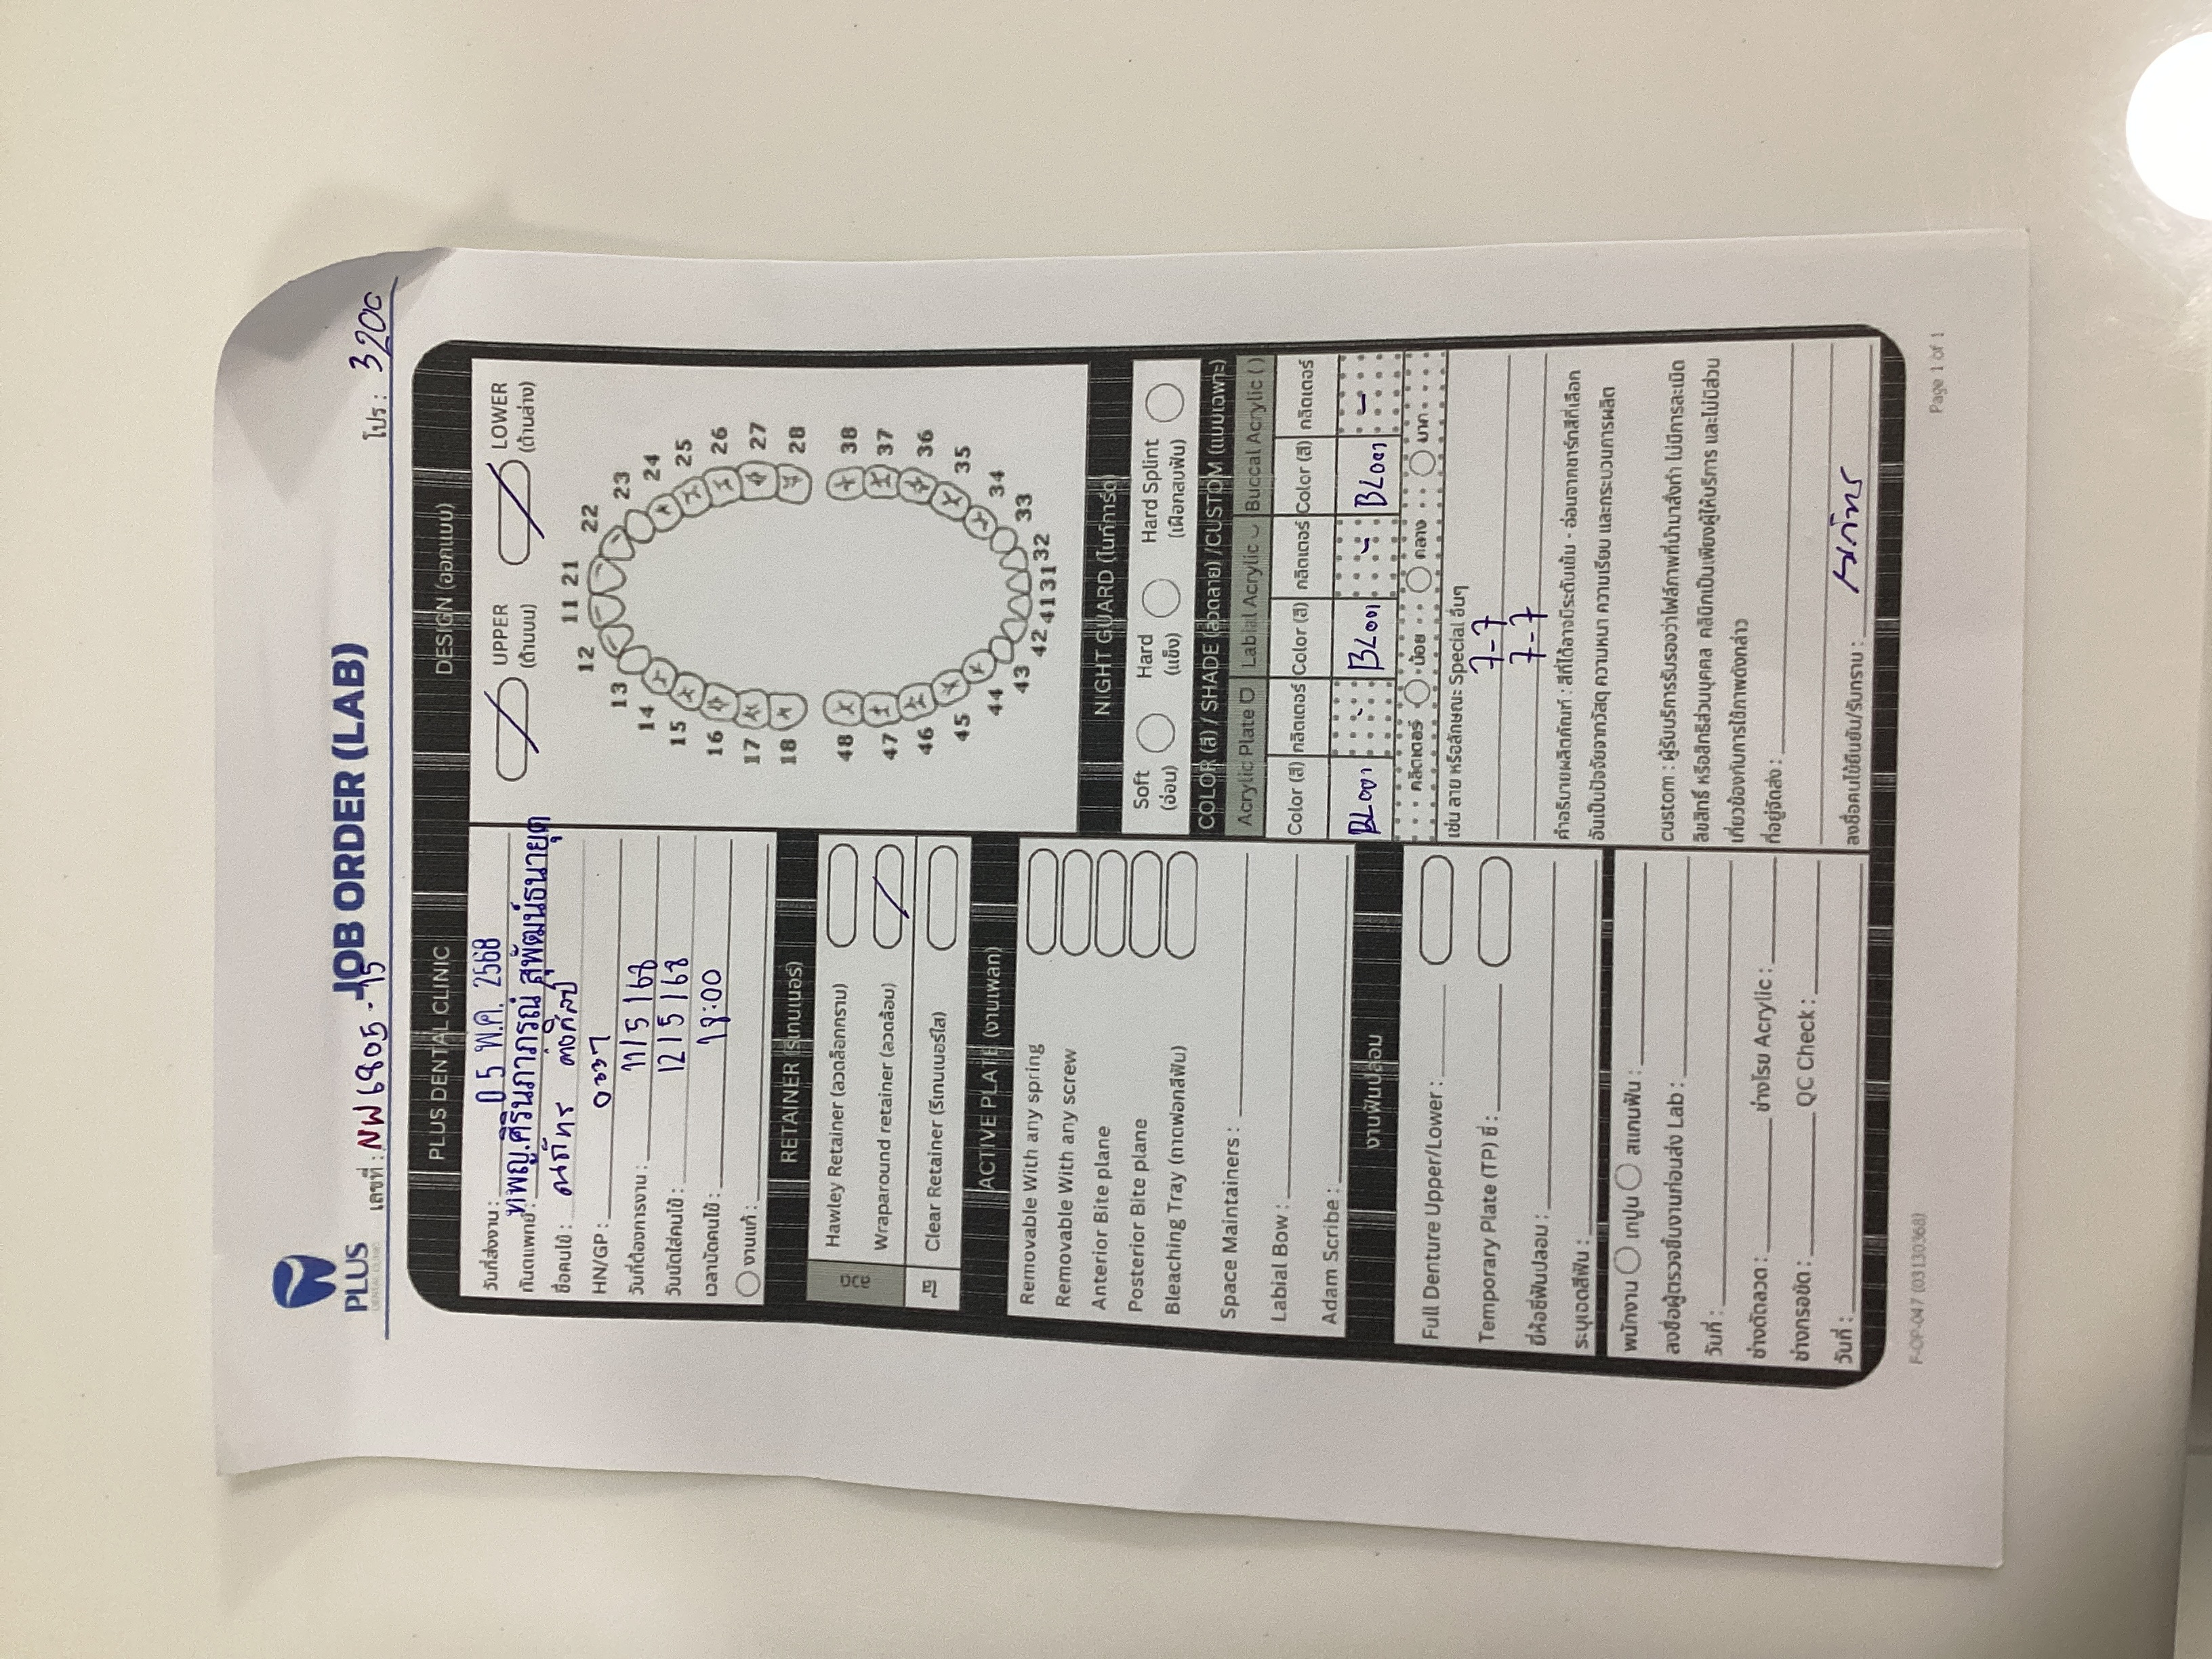 PLUS
DENTAL CLINIC
JOB ORDER (LAB)
เลขที่ : NW6805-15
โปร : 3200
PLUS DENTAL CLINIC
วันที่ส่งงาน : 05 พ.ค. 2568
ทันตแพทย์ : ทพญ.ศิรินภาภรณ์ สุพัฒน์ธนายุต
ชื่อคนไข้ : ณภัทร
HN/GP : 0337
วันที่ต้องการงาน : 11/5/68
วันนัดใส่คนไข้ : 12/5/68
เวลานัดคนไข้ : 18:00
งานแก้ :
RETAINER (รีเทนเนอร์)
ลวด
Hawley Retainer (ลวดล็อกกราม)
Wraparound retainer (ลวดล้อม)
ใส
Clear Retainer (รีเทนเนอร์ใส)
ACTIVE PLATE (งานเพลท)
Removable With any spring
Removable With any screw
Anterior Bite plane
Posterior Bite plane
Bleaching Tray (ถาดฟอกสีฟัน)
Space Maintainers :
Labial Bow :
Adam Scribe :
งานฟันปลอม
Full Denture Upper/Lower :
Temporary Plate (TP) ซี่ :
ยี่ห้อซี่ฟันปลอม :
ระบุเฉดสีฟัน :
พนักงาน เทปูน สแกนฟัน :
ลงชื่อผู้ตรวจชิ้นงานก่อนส่ง Lab :
วันที่ :
ช่างดัดลวด : ช่างโรย Acrylic :
ช่างกรอขัด : QC Check :
วันที่ :
DESIGN (ออกแบบ)
UPPER LOWER
(ด้านบน) (ด้านล่าง)
11 21
12 22
13 23
14 24
15 25
16 26
17 27
18 28
48 38
47 37
46 36
45 35
44 34
43 33
42 41 31 32
NIGHT GUARD (ไนท์การ์ด)
Soft Hard Hard Splint
(อ่อน) (แข็ง) (เฝือกสบฟัน)
COLOR (สี) / SHADE (ลวดลาย) /CUSTOM (แบบเฉพาะ)
Acrylic Plate Labial Acrylic Buccal Acrylic ( )
Color (สี) กลิตเตอร์ Color (สี) กลิตเตอร์ Color (สี) กลิตเตอร์
BL001 - BL001 - BL001 -
กลิตเตอร์ น้อย กลาง มาก
เช่น ลาย หรือลักษณะ Special อื่นๆ
7-7
7-7
คำอธิบายผลิตภัณฑ์ : สีที่ได้อาจมีระดับเข้ม - อ่อนจากชาร์ทสีที่เลือก
อันเป็นปัจจัยจากวัสดุ ความหนา ความเรียบ และกระบวนการผลิต
custom : ผู้รับบริการรับรองว่าไฟล์ภาพที่นำมาสั่งทำ ไม่มีการละเมิด
ลิขสิทธิ์ หรือสิทธิส่วนบุคคล คลินิกเป็นเพียงผู้ให้บริการ และไม่มีส่วน
เกี่ยวข้องกับการใช้ภาพดังกล่าว
ที่อยู่จัดส่ง :
ลงชื่อคนไข้ยืนยัน/รับทราบ : ณภัทร
F-OP-047 (03130368)
Page 1 of 1